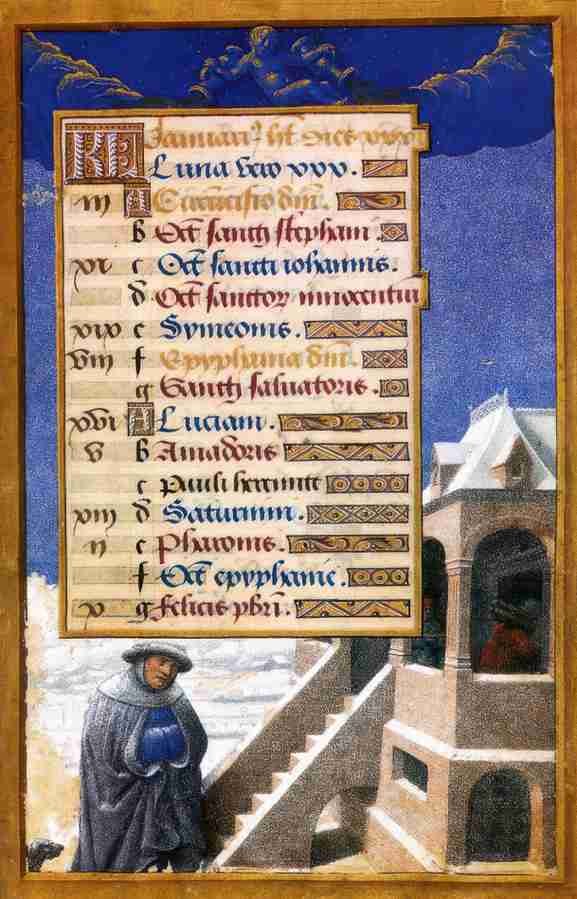 KL Januarius ht dies xxxi
Luna vero xxx.
iii A Circuncisio dni.
b Oct sancti stephani.
xi c Oct sancti iohannis.
d Oct sanctor innocentui
xix e Symeonis.
viii f Epyphania dni.
g Sancti saluatoris.
xvi A Luciani.
v b Amadoris
c Pauli heremite
xiii d Saturnini.
ii e Pharonis.
f Oct epyphanie.
x g felicis pbri.